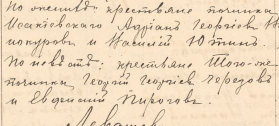 По женихѣ: крестьяне починка
Исаковскаго Адріанъ Георгіевъ
покуровъ и Василій Ютинъ.
По невѣстѣ: крестьяне того-же
починка Георгій Георгіевъ Чередовъ
и Евгеній Пироговъ.